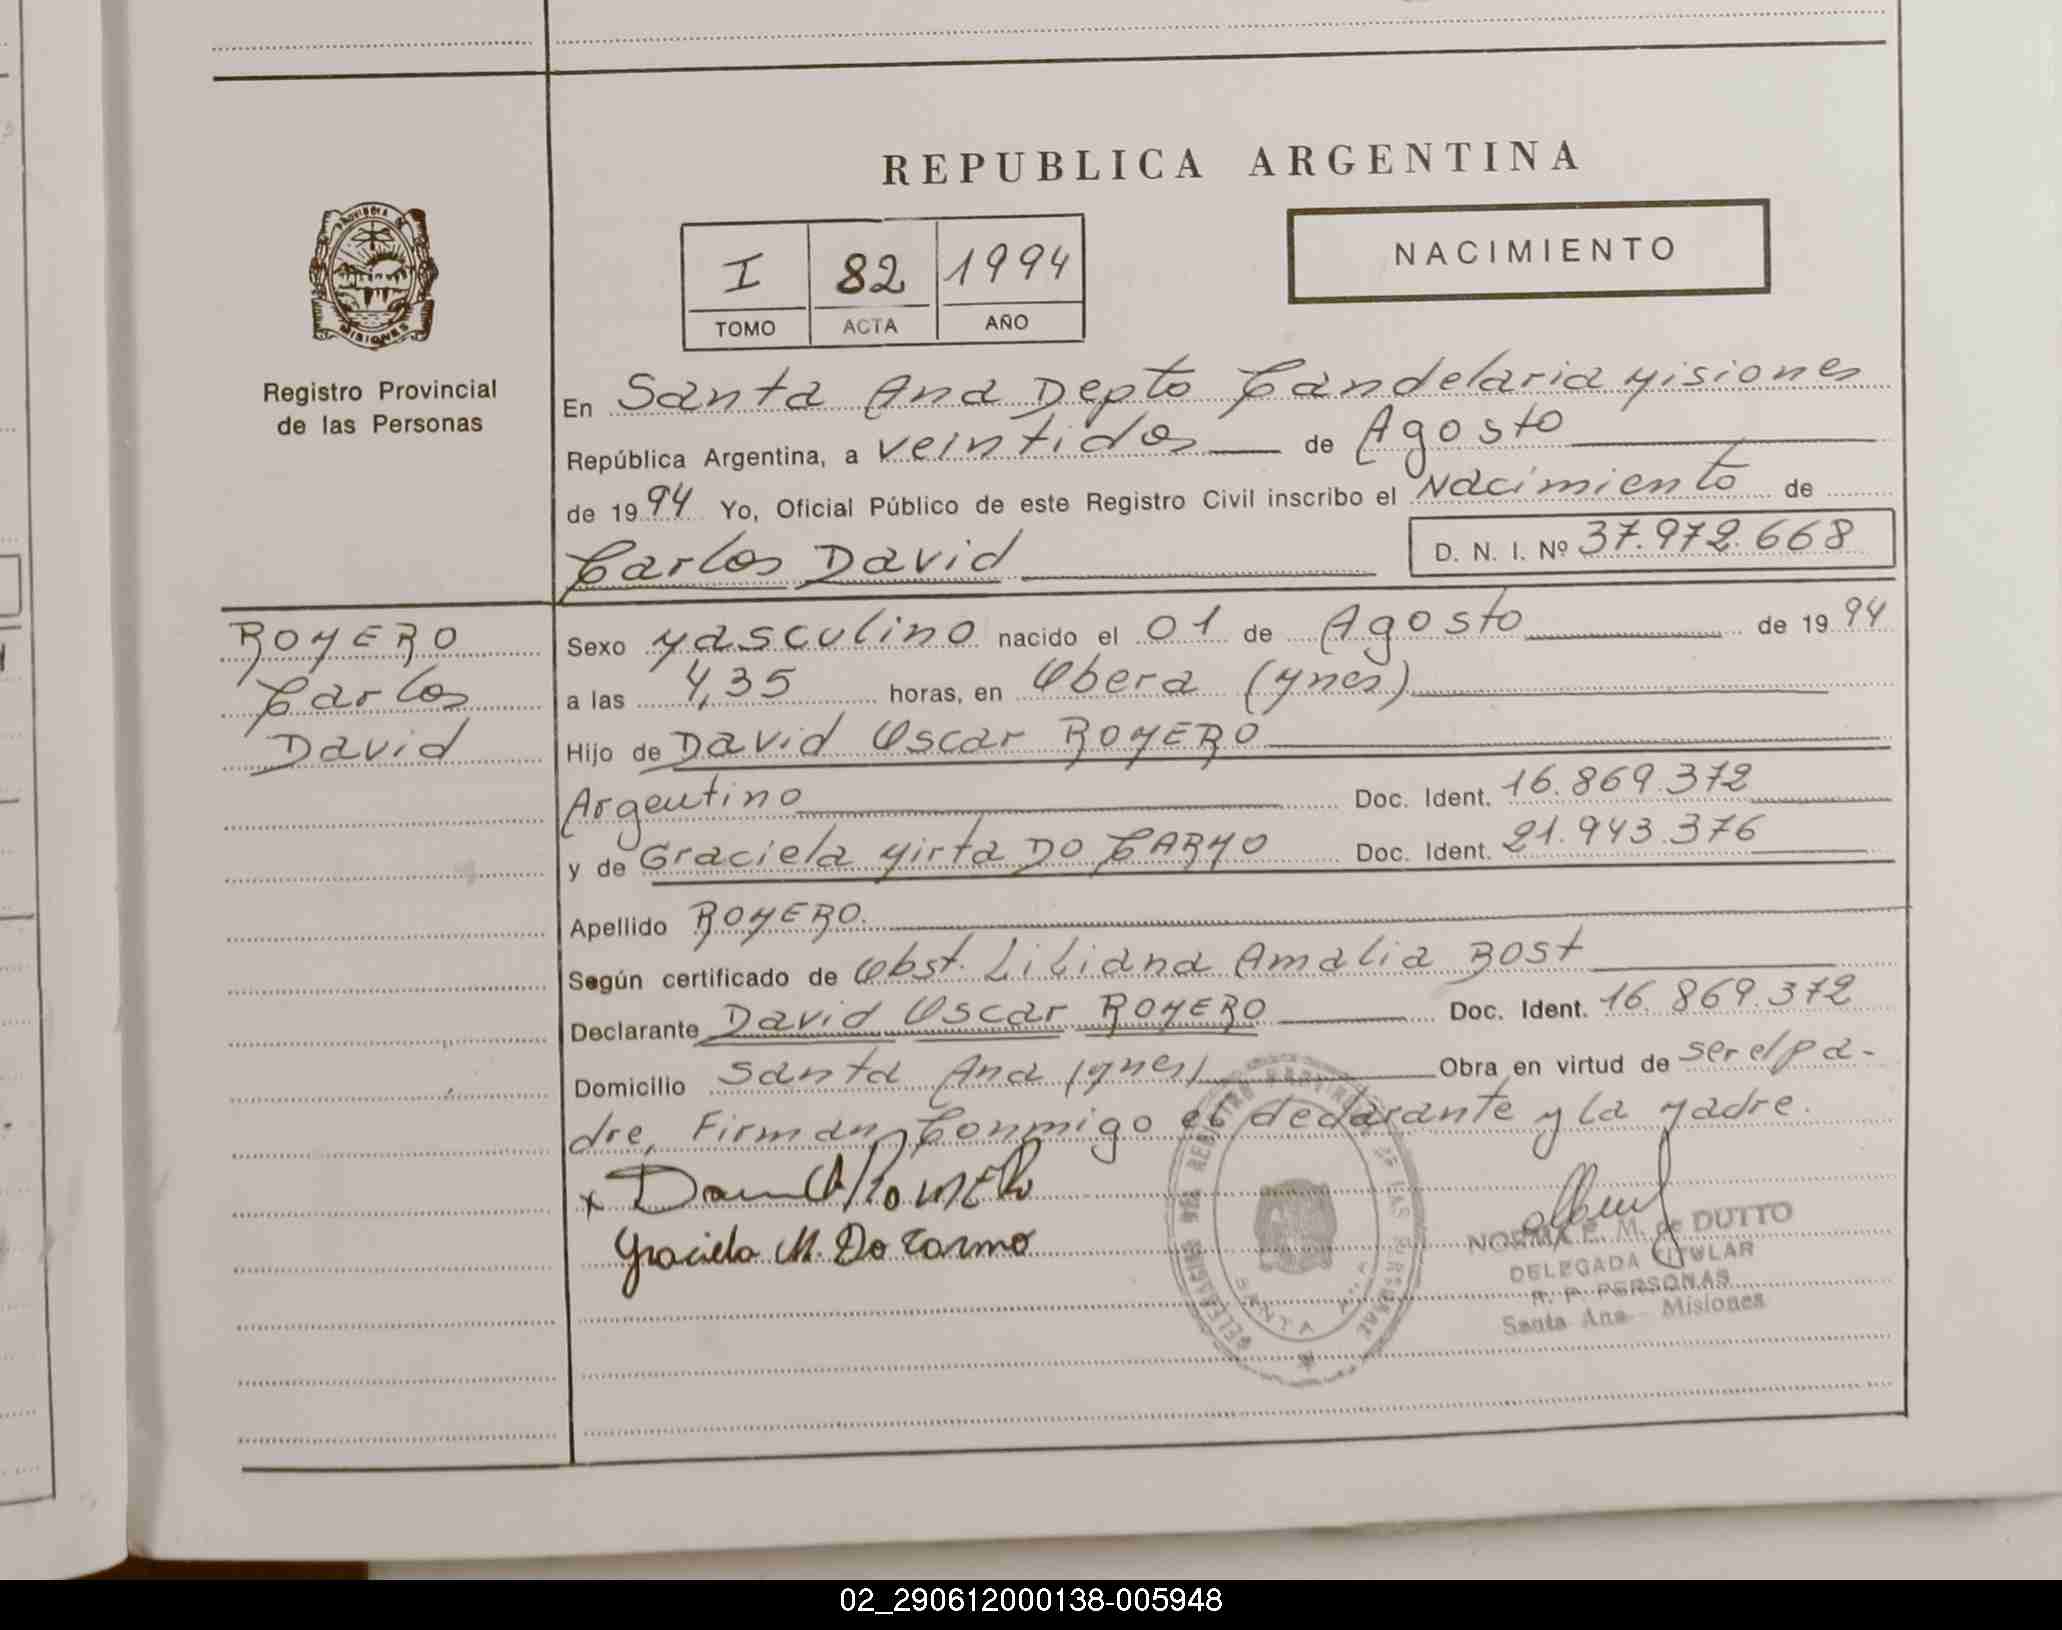 REPUBLICA ARGENTINA
PROVINCIA DE
MISIONES
I 82 1994
TOMO ACTA AÑO
NACIMIENTO
Registro Provincial
de las Personas
En Santa Ana Depto Candelaria Misiones
República Argentina, a veintidos de Agosto
de 1994 Yo, Oficial Público de este Registro Civil inscribo el Nacimiento de
Carlos David D. N. I. Nº 37.972.668
ROMERO
Carlos
David
Sexo Masculino nacido el 01 de Agosto de 1994
a las 4,35 horas, en Obera (Mnes)
Hijo de David Oscar ROMERO
Argentino Doc. Ident. 16.869.372
y de Graciela Mirta DO CARMO Doc. Ident. 21.943.376
Apellido ROMERO.
Según certificado de Obst. Liliana Amalia Bost
Declarante David Oscar ROMERO Doc. Ident. 16.869.372
Domicilio Santa Ana (Mnes) Obra en virtud de ser el pa-
dre, Firman Conmigo el declarante y la Madre.
Graciela M. Do Carmo
DELEGACION DEL REGISTRO PROVINCIAL DE LAS PERSONAS
SANTA ANA
NORMA E. M. de DUTTO
DELEGADA TITULAR
R. P. PERSONAS
Santa Ana - Misiones
02_290612000138-005948